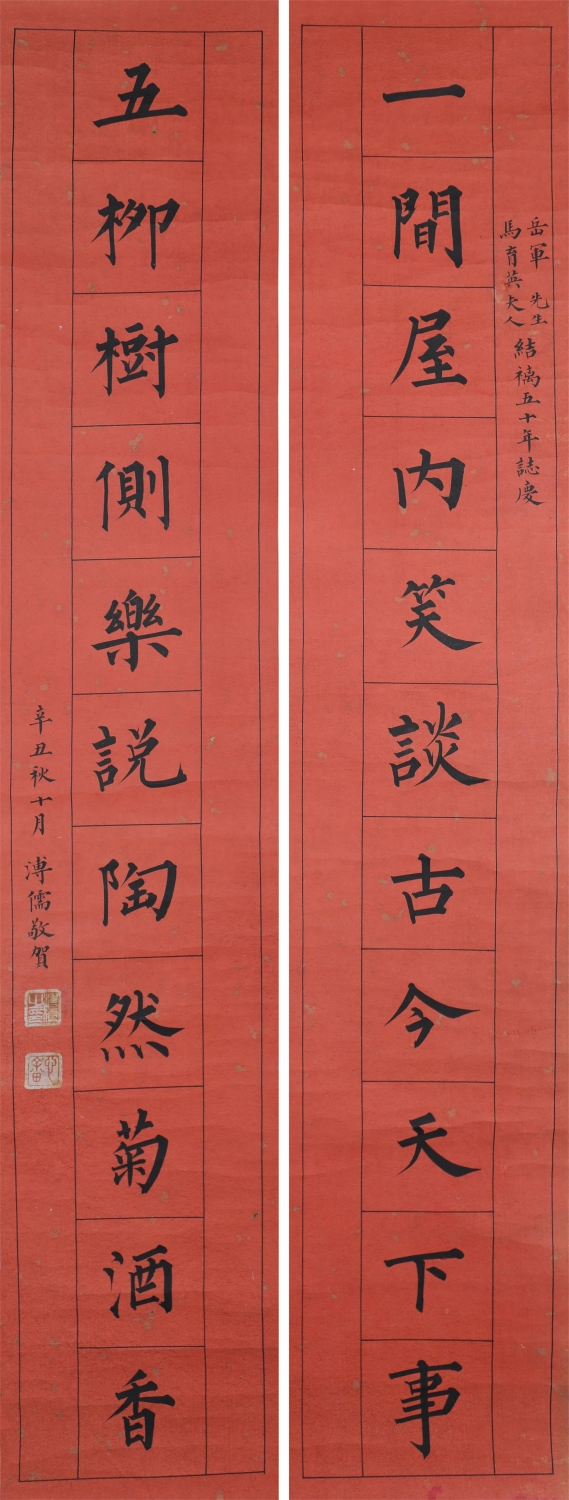 岳軍先生
馬育英夫人
結褵五十年誌慶
一間屋内笑談古今天下事
五柳樹側樂説陶然菊酒香
辛丑秋十月溥儒敬賀